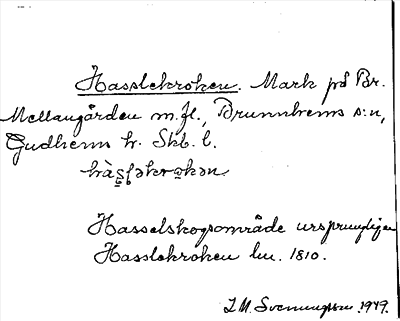 Hasslekroken. Mark på Br.
Mellangården m.fl., Brunnhems s:n,
Gudhems hr. Skb. l.
Hasselskogsområde ursprungligen
Hasslekroken lm. 1810.
I.M. Svenungsson. 1949.